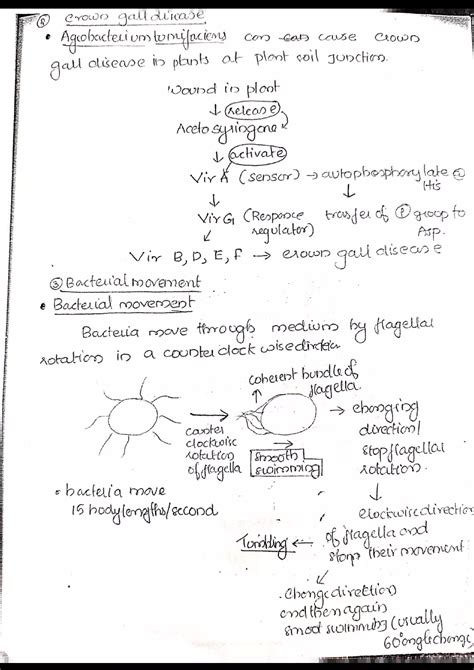 ② Crown gall disease
• Agrobacterium tumifaciens can cause crown
gall disease in plants at plant soil junction.
Wound in plant
↓ release
Acetosyringone
↓ activate
Vir A (sensor) → autophosphorylate @ His
↓ ↓
Vir G (Responce regulator) transfer of Ⓟ group to Asp.
Vir B, D, E, F → crown gall disease
③ Bacterial movement
• Bacterial movement
Bacteria move through medium by flagellar
rotation in a counter clock wise direction
coherent bundle of
flagella.
counter
clockwise
rotation
of flagella
smooth
swimming
→ changing
direction/
stop flagellar
rotation.
• bacteria move
15 body lengths/second
↓
clockwise direction
of flagella and
stop their movement
Tumbling ←
. Change direction
and then again
smooth swimming (usually
60° angle change